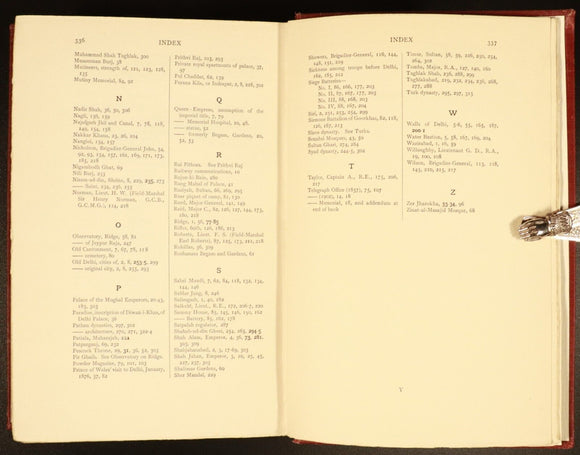 336 INDEX
Muhammad Shah Tughlak, 300
Musamman Burj, 38
Mutineers, strength of, 121, 123, 126,
135
Mutiny Memorial, 84, 92
N
Nadir Shah, 36, 50, 306
Nagli, 136, 139
Najafgarh Jhil and Canal, 7, 78, 118,
Nakhar Khana, 23, 26, 204
Nangloi, 139, 157
Nicholson, Brigadier-General John, 54,
185, 218
Nigambodh Ghat, 69
Nili Burj, 233
Norman, Lieut. H. W. (Field-Marshal
Sir Henry Norman, G.C.B.,
G.C.M.G.), 134, 218
O
Observatory, Ridge, 58, 81
—— of Jeypur Raja, 247
Old Cantonment, 7, 67, 78, 118
—— cemetery, 80
Old Delhi, cities of, 2, 8, 253-5, 299
—— original city, 2, 8, 255, 293
P
Palace of the Mughal Emperors, 20-43,
185, 303
Paradise, inscription of Diwan-i-Khas, of
Delhi Palace, 36
Pathan dynasties, 297, 302
—— architecture, 270, 271, 302-4
Patiala, Maharajah, 122
Patparganj, 69, 232
Peacock Throne, 29, 31, 36, 52, 305
Pir Ghaib. See Observatory on Ridge.
Powder Magazine, 79, 101, 103
Prince of Wales' visit to Delhi, January,
1876, 37, 82
Prithvi Raj, 295, 293
Private royal apartments of palace, 37,
Pul Chaddar, 62, 139
Purana Kila, or Indrapat, 2, 8, 228, 302
Q
Queen-Empress, assumption of the
imperial title, 7, 79
—— Memorial Hospital, 16, 48
—— statue, 52
—— formerly Begam, Gardens, 20,
52, 53
R
Rai Pithora. See Prithvi Raj
Railway communications, 10
Rang Mahal of Palace, 41
River piquet of camp, 81, 130
Reed, Major General, 141, 149
180, 218
Ridge, 1, 56, 77-85
Roberts, Lieut. F. S. (Field-Marshal
Earl Roberts), 87, 125, 173, 211, 218
Rohillas, 36, 309
Roshanara Begam and Gardens, 61
S
Sabzi Mandi, 7, 62, 84, 118, 132, 134,
144, 146
Safdar Jang, 8, 246
Salimgarh, 1, 40, 182
Salkeld, Lieut., R.E., 172, 206-7, 220
Sammy House, 85, 145, 146, 150, 162
—— Battery, 85, 162, 178
Satpulah regulator, 287
Shahab-ud-din Ghori, 254, 265, 294-5
Shah Alam, Emperor, 4, 36, 73, 281,
305, 309
Shahjahanabad, 2, 3, 17-69, 305
Shah Jahan, Emperor, 3, 19, 25, 43,
227, 237, 305
Shalimar Gardens, 60
Sher Mandal, 229
INDEX 337
Showers, Brigadier-General, 126, 144,
148, 151, 219
Sickness among troops before Delhi,
162, 165, 212
Siege Batteries—
No. I, 86, 166, 177, 203
No. II, 87, 167, 177, 203
No. III, 88, 168, 203
No. IV, 88, 167, 204
Siri, 2, 251, 253, 254, 299
Sirmoor Battalion of Goorkhas, 82, 118,
126, 167, 213
Slave dynasty. See Turks.
Sonahri Masjid, 43, 50
Sultan Ghazi, 274, 284
Syud dynasty, 244-5, 304
T
Taylor, Captain A., R.E., 175, 206,
217
Telegraph Office (1857), 75, 107
—— (1902), 14, 18
—— Memorial, 18, and addendum at
end of book
Timur, Sultan, 38, 59, 226, 250, 254,
264, 302
Tombs, Major, R.A., 127, 140, 160
Tughlak Shah, 236, 288, 299
Tughlakabad, 219, 232, 234, 236, 288,
277, 288
Turk dynasty, 295, 297, 303
W
Walls of Delhi, 5-6, 55, 165, 187,
200-1
Water Bastion, 5, 58, 167, 189, 204
Wazirabad, 1, 16, 59
Willoughby, Lieutenant G. D., R.A.,
19, 100, 108
Wilson, Brigadier-General, 113, 118,
143, 210, 215, 217
Z
Zer Jharokha, 33-34, 96
Zinat-al-Masajid Mosque, 68
Y